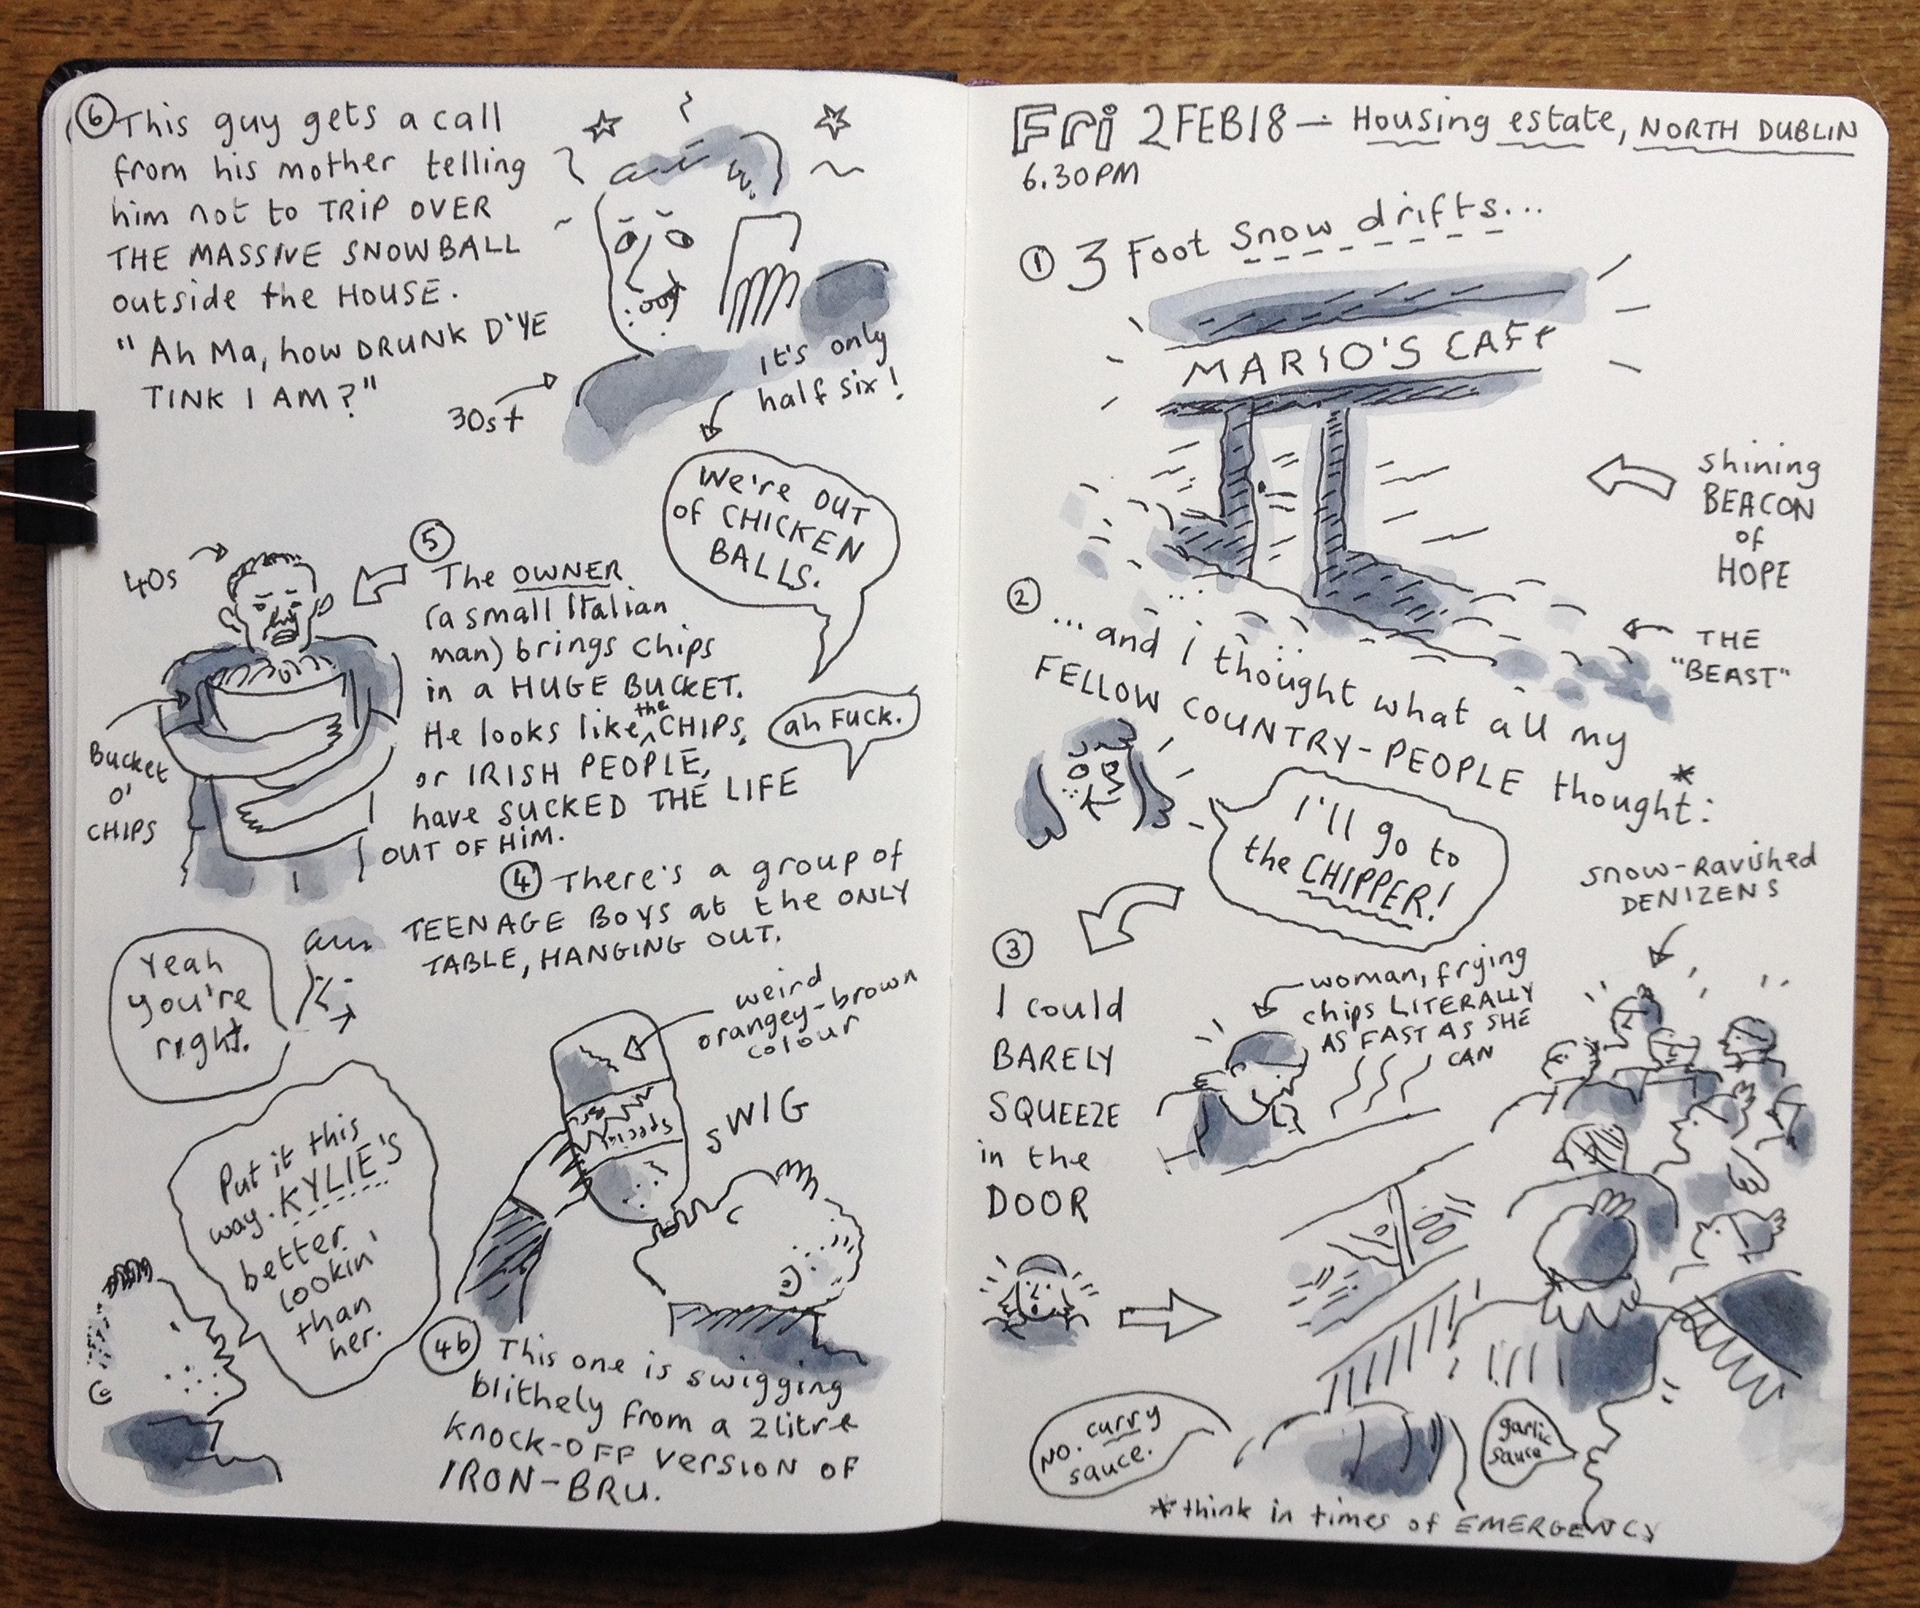 Fri 2FEB18 — Housing estate, NORTH DUBLIN
6.30PM
① 3 Foot Snow drifts...
MARIO'S CAFE
shining
BEACON
of
HOPE
THE
"BEAST"
② ...and I thought what all my
FELLOW COUNTRY-PEOPLE thought*:
I'll go to
the CHIPPER!
snow-ravished
DENIZENS
③
I could
BARELY
SQUEEZE
in the
DOOR
woman, frying
chips LITERALLY
AS FAST AS SHE
CAN
No. curry
sauce.
garlic
sauce
*think in times of EMERGENCY
④ There's a group of
TEENAGE BOYS at the ONLY
TABLE, HANGING OUT.
Yeah
you're
right.
Put it this
way. KYLIE'S
better
lookin'
than
her.
weird
orangey-brown
colour
SWIG
④b This one is swigging
blithely from a 2litre
KNOCK-OFF VERSION OF
IRON-BRU.
⑤
The OWNER
(a small Italian
man) brings chips
in a HUGE BUCKET.
He looks like the CHIPS,
or IRISH PEOPLE,
have SUCKED THE LIFE
OUT OF HIM.
40s
Bucket
O'
CHIPS
⑥ This guy gets a call
from his mother telling
him not to TRIP OVER
THE MASSIVE SNOWBALL
outside the HOUSE.
"Ah Ma, how DRUNK D'YE
TINK I AM?"
30s
it's only
half six!
We're OUT
of CHICKEN
BALLS.
ah Fuck.